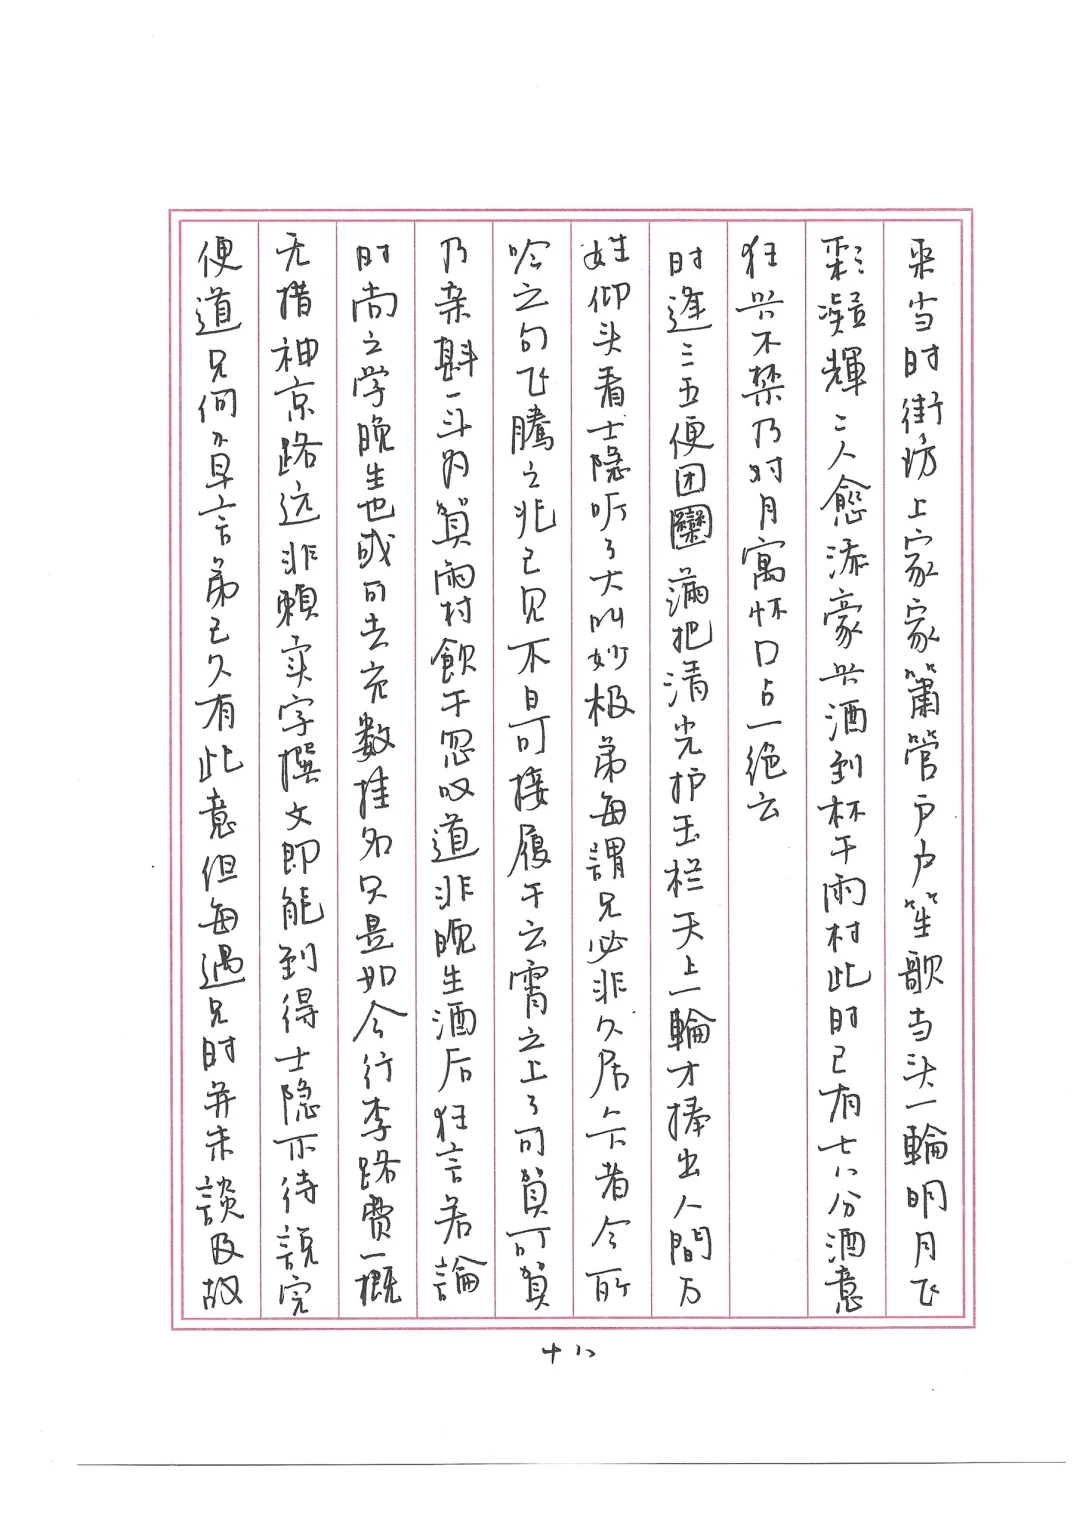 来当时街坊上家家箫管户户笙歌当头一輪明月飞
彩凝輝二人愈添豪兴酒到杯干雨村此时已有七八分酒意
狂兴不禁乃对月寓怀口占一绝云
时逢三五便团圞滿把清光护玉栏天上一輪才捧出人間万
姓仰头看士隐听了大叫妙极弟每謂兄必非久居人下者今所
吟之句飞騰之兆已见不日可接履于云霄之上了可賀可賀
乃亲斟一斗为賀雨村飲干忽叹道非晚生酒后狂言若論
时尚之学晚生也或可去充数挂名只是如今行李路费一概
无措神京路远非賴卖字撰文即能到得士隐不待說完
便道兄何不早言弟已久有此意但每遇兄时并未談及故
十八